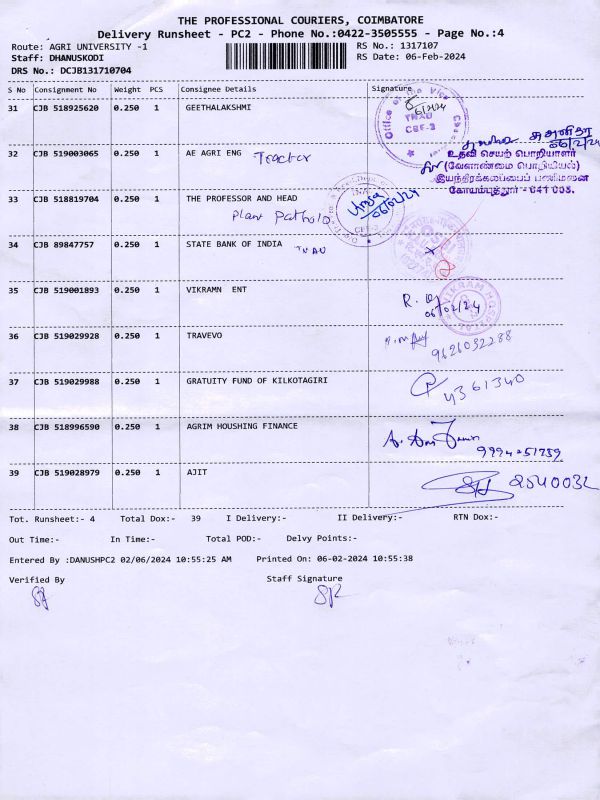 THE PROFESSIONAL COURIERS, COIMBATORE
Delivery Runsheet - PC2 - Phone No.:0422-3505555 - Page No.:4
Route: AGRI UNIVERSITY -1
RS No.: 1317107
Staff: DHANUSKODI
RS Date: 06-Feb-2024
DRS No.: DCJB131710704
S No Consignment No Weight PCS Consignee Details Signature
31 CJB 518925620 0.250 1 GEETHALAKSHMI
Office of the Vice
6/2/24
TNAU
CBE-3
32 CJB 519003065 0.250 1 AE AGRI ENG Teactor
உதவி செயற் பொறியாளர்
(வேளாண்மை பொறியியல்)
இயந்திரக்கலப்பைப் பணிமனை
கோயம்புத்தூர் - 641 003.
33 CJB 518819704 0.250 1 THE PROFESSOR AND HEAD
Plant Patholo
34 CJB 89847757 0.250 1 STATE BANK OF INDIA TNAU
35 CJB 519001893 0.250 1 VIKRAMN ENT
06/02/24
VIKRAM
36 CJB 519029928 0.250 1 TRAVEVO
9626032288
37 CJB 519029988 0.250 1 GRATUITY FUND OF KILKOTAGIRI
4361340
38 CJB 518996590 0.250 1 AGRIM HOUSHING FINANCE
9994251759
39 CJB 519028979 0.250 1 AJIT
2540032
Tot. Runsheet:- 4 Total Dox:- 39 I Delivery:- II Delivery:- RTN Dox:-
Out Time:- In Time:- Total POD:- Delvy Points:-
Entered By :DANUSHPC2 02/06/2024 10:55:25 AM Printed On: 06-02-2024 10:55:38
Verified By Staff Signature